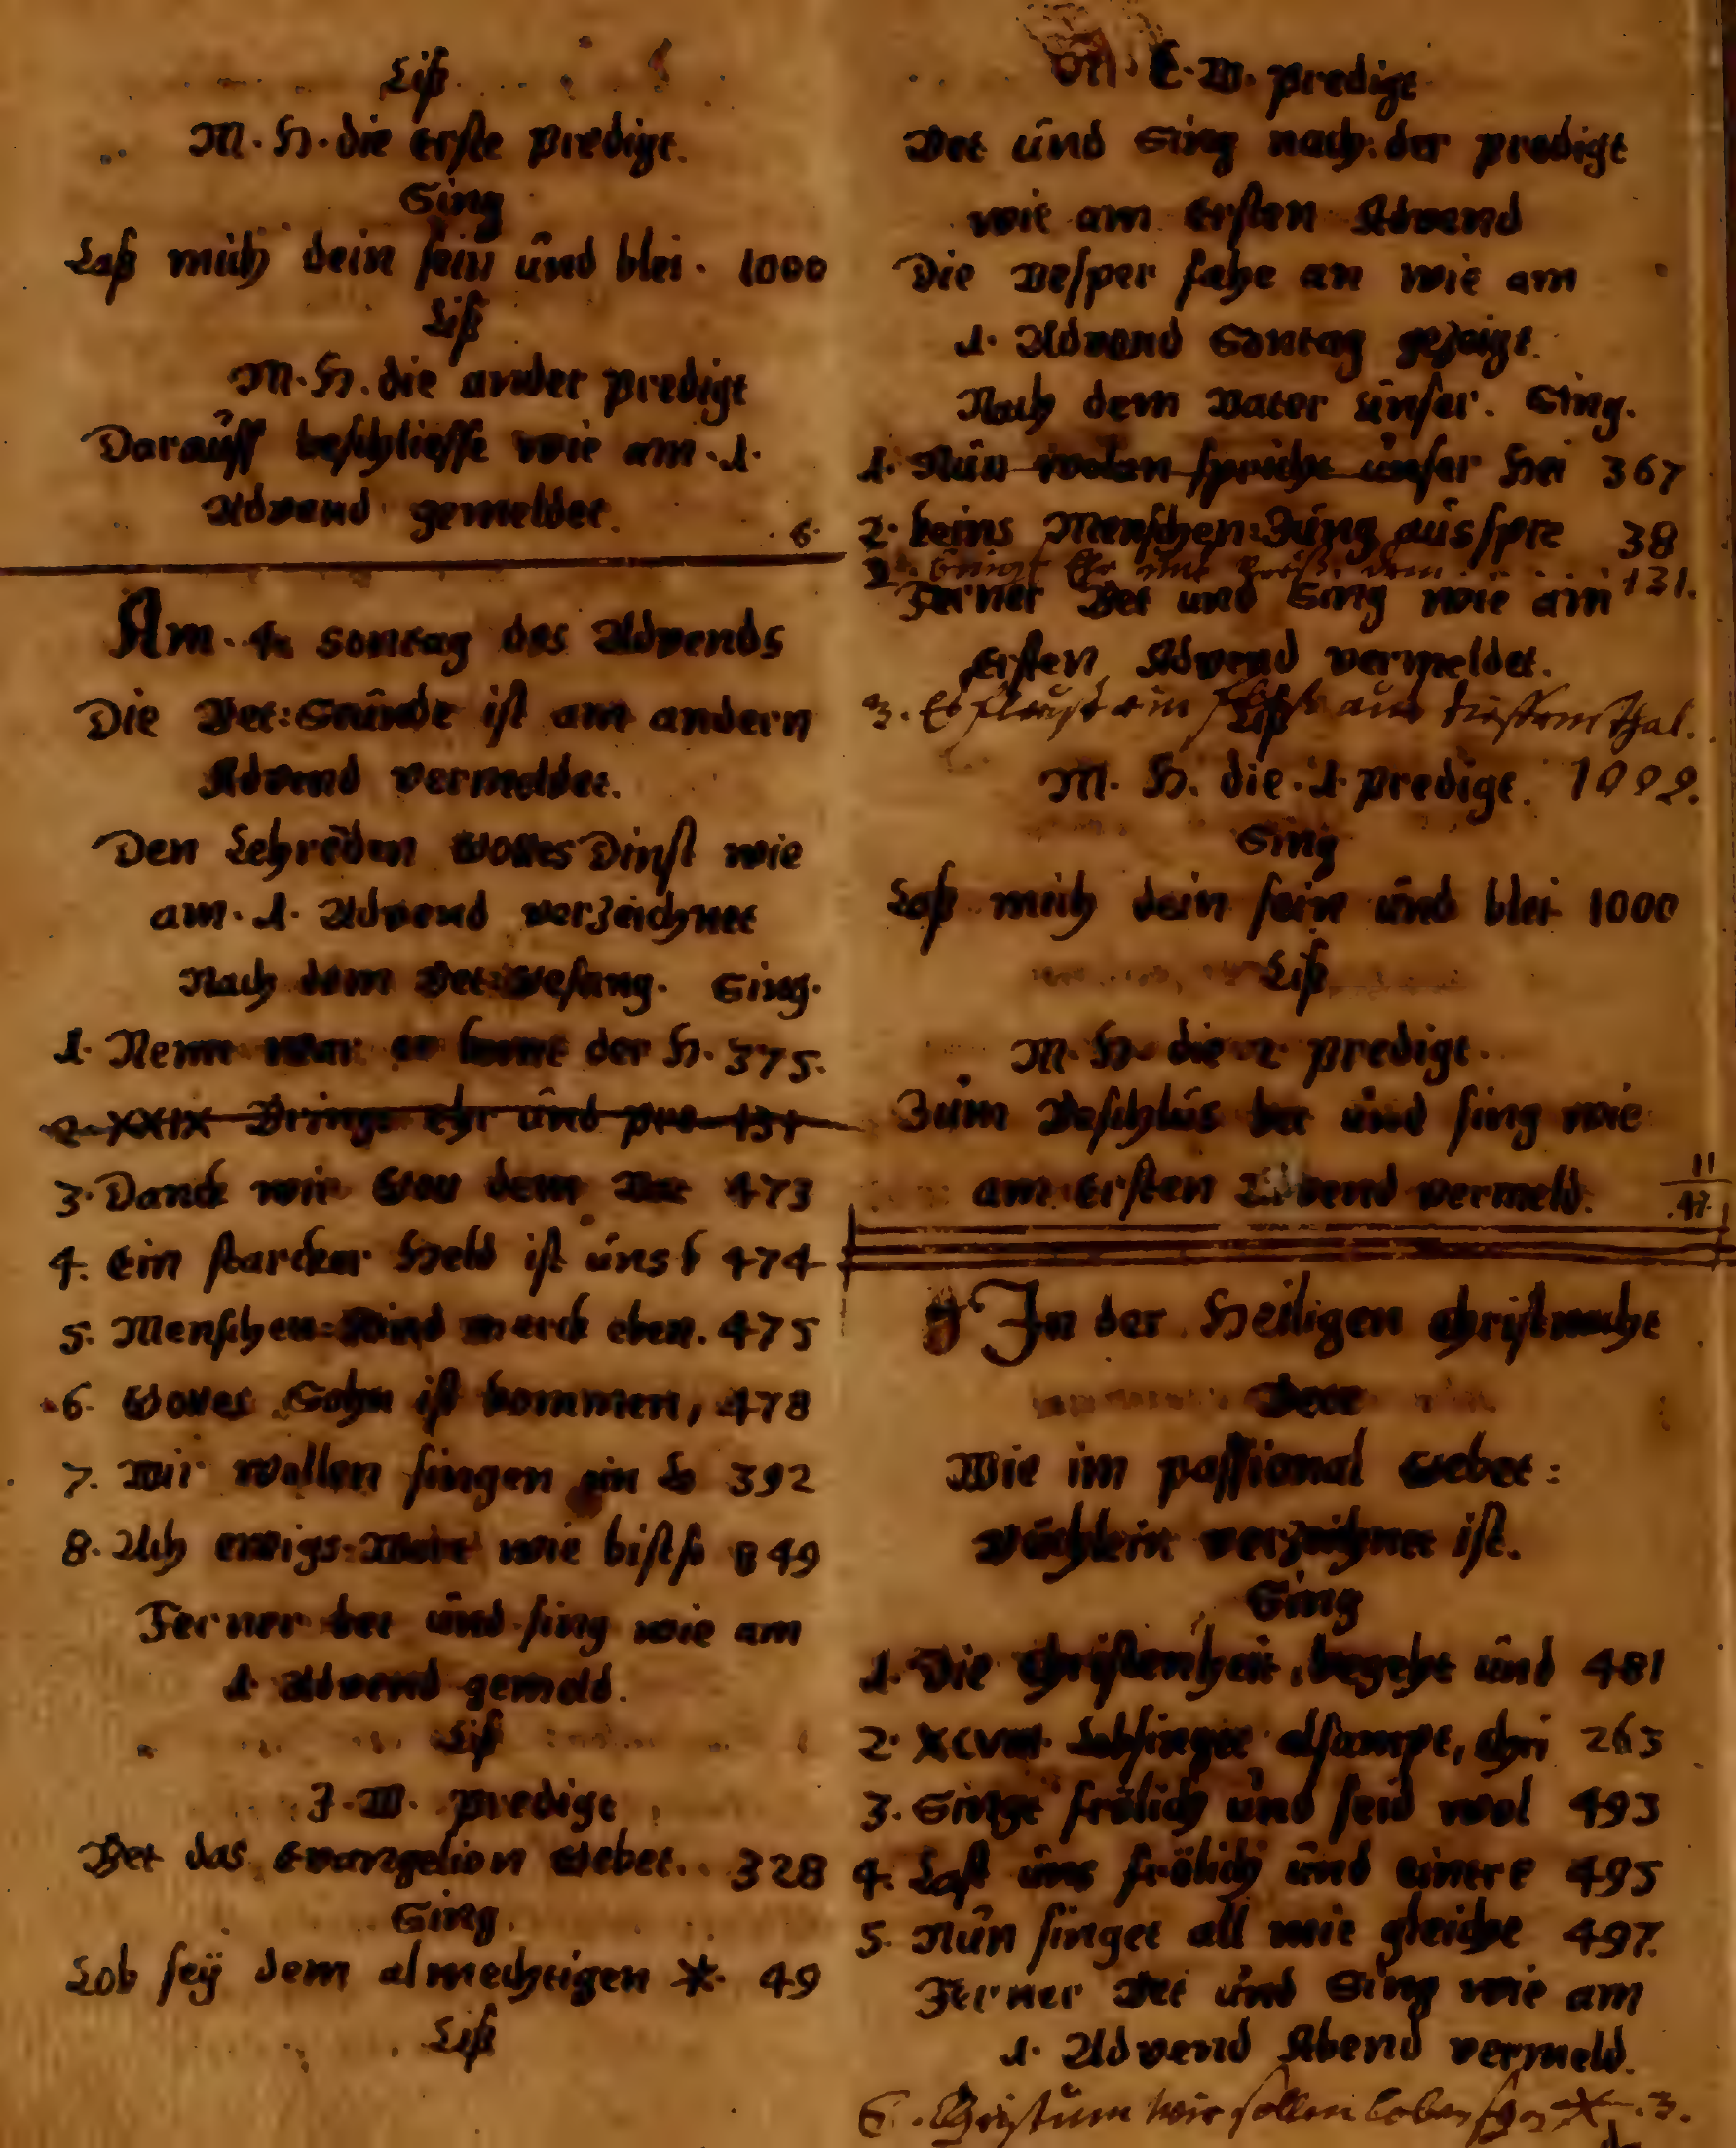 Liß
M. H. die erste Predigt.
Sing
Laß mich dein sein ûnd blei. 1000
Liß
M. H. die ander Predigt
Darauff beschliesse wie am. 1.
Advend gemeldet. 6.
Am. 4. Sontag des Advends
Die Bet: Stûnde ist am andern
Advend vermeldet.
Den Gottes Dinst wie
am. 1. Advend verzeichnet
Nach dem Bet: Gesang. Sing.
1. Nemt war er komt der H. 375.
2. XXIX Bringt ehr ûnd pre 131
3. Danck wir Gott dem Vat 473
4. Ein starcker Held ist ûns k 474
5. Menschen: Kind merck eben. 475
6. Gottes Sohn ist kommen, 478
7. Wir wollen singen ein L 392
8. Ach ewigs: Wort wie bist so 849
Ferner bet ûnd sing wie am
1. Advend gemeld.
Liß
J. W. Predigt
Bet das Evangelion Gebet. 328
Sing.
Lob seÿ dem almechtigen * 49
Liß
E. W. Predigt
Bet ûnd Sing nach: der predigt
wie am Ersten Advend
Die Vesper fahe an wie am
1. Advend Sontag gezeigt.
Nach dem Vater ûnser. Sing.
1. Nûn wolan spricht ûnser Hei 367
2. keins Menschen: Zûng aûsspre 38
Bringt Ehr und Preiß dem 131.
Ferner Bet ûnd Sing wie am
Ersten Advend vermeldet.
3. Es fleugt ein aus Thal.
Liß
M. H. die. 1. Predigt. 1092.
Sing
Laß mich dein sein ûnd blei 1000
Liß
M. H. die 2. predigt.
Zûm Beschlûs bet ûnd sing wie
am Ersten Advend vermeld. 11
47.
In der Heiligen Christnacht
Bete
Wie im passional Gebet:
Büchlein verzeichnet ist.
Sing
1. Die Christenheit, begeht ûnd 481
2. XCVIII. Lobsinget alsampt, Chri 263
3. Singt frölich ûnd seid wol 493
4. Last ûns frölich ûnd eintre 495
5. Nûn singet all mit gleiche 497.
Ferner Bet ûnd Sing wie am
1. Advend Abend vermeld.
6. Christum wir sollen loben schon * 3.